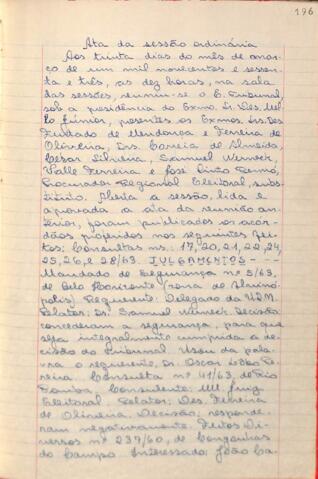 196
Ata da sessão ordinária
Aos trinta dias do mês de mar-
ço de um mil novecentos e sessen-
ta e três, às dez horas, na sala
das sessões, reuniu-se o E. Tribunal,
sob a presidência do Exmo. Sr. Des. Mél-
lo Júnior, presentes os Exmos. Srs. Des.
Furtado de Mendonça e Ferreira de
Oliveira, Drs. Correia de Almeida,
César Silveira, Samuel Werneck,
Valle Ferreira e José Pinto
Procurador Regional Eleitoral, subs-
tituto. Aberta a sessão, lida e
aprovada a ata da reunião an-
terior, foram publicados os acór-
dãos proferidos nos seguintes fei-
tos: Consultas ns.: 17, 20, 21, 22, 24,
25, 26, e 28/63. JULGAMENTOS - - -
Mandado de Segurança nº 5/63,
de Belo Horizonte
Requerente: Delegado da UDN.
Relator: Dr. Samuel Werneck. Decisão:
concederam a segurança, para que
seja integralmente cumprida a de-
cisão do Tribunal. Usou da pala-
vra o requerente, Dr. Oscar
Consulta nº 41/63, de Rio
Pomba. Consulente: MM. Juiz
Eleitoral. Relator: Des. Ferreira
de Oliveira. Decisão: responde-
ram negativamente. Feitos Di-
versos nº 239/60, de Congonhas
do Campo. Interessado: João Ca-